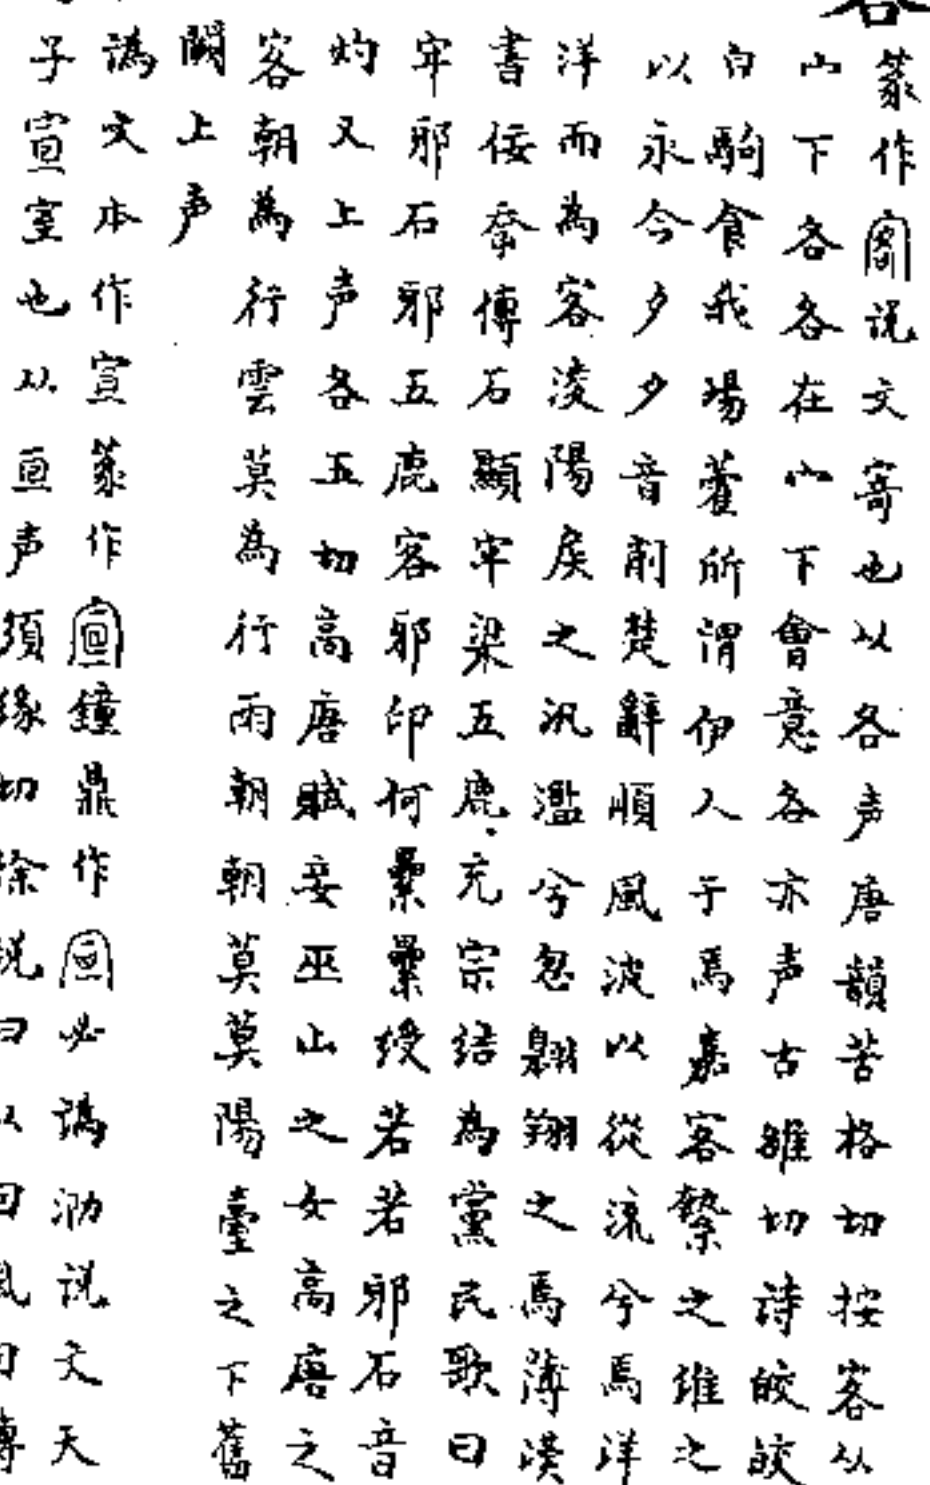 客
篆作𡧢説文寄也从各声唐韻苦格切按客从
山下各各在山下會意各亦声古雒切詩皎皎
白駒食我場藿所謂伊人于焉嘉客縶之維之
以永今夕夕音削楚辭順風波以從流兮焉洋
洋而為客淩陽侯之汎濫兮忽翱翔之焉薄漢
書佞幸傅石顯牢梁五鹿充宗結為黨民歌曰
牢邪石邪五鹿客邪印何纍纍綬若若邪石音
灼又上声各五切高唐賦妾巫山之女高唐之
客朝為行雲莫為行雨朝朝莫莫陽臺之下舊
闕上声
譌文本作宣篆作鐘鼎作必譌泐説文天
子宣室也从亘声須緣切徐説曰从回風回傳